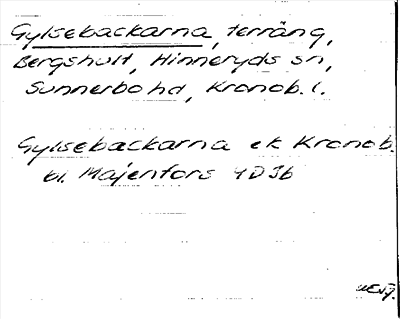 Gylsebackarna, terräng,
Bergshult, Hinneryds sn,
Sunnerbo hd, Kronob. l.
Gylsebackarna ek Kronob.
bl. Majenfors 4D3b